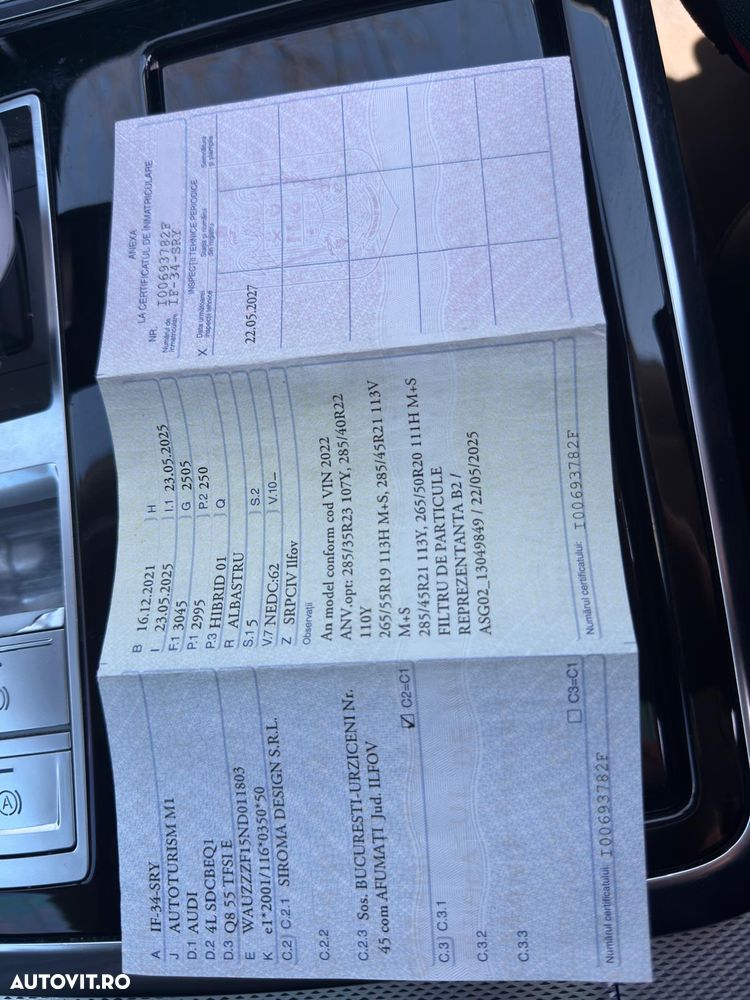 A IF-34-SRY
J AUTOTURISM M1
D.1 AUDI
D.2 4L SDCBEQ1
D.3 Q8 55 TFSI E
E WAUZZZF15ND011803
K e1*2001/116*0350*50
C.2 C.2.1 SIROMA DESIGN S.R.L.
C.2.2
C.2.3 Sos. BUCURESTI-URZICENI Nr.
45 com AFUMAȚI Jud. ILFOV
C2=C1
C.3 C.3.1
C.3.2
C.3.3
C3=C1
Numărul certificatului: I00693782F
B 16.12.2021 H
I 23.05.2025 I.1 23.05.2025
F.1 3045 G 2505
P.1 2995 P.2 250
P.3 HIBRID 01 Q
R ALBASTRU
S.1 5 S.2
V.7 NEDC:62 V.10
Z SRPCIV Ilfov
Observații
An model conform cod VIN 2022
ANV.opt: 285/35R23 107Y, 285/40R22
110Y
265/55R19 113H M+S, 285/45R21 113V
M+S
285/45R21 113Y, 265/50R20 111H M+S
FILTRU DE PARTICULE
REPREZENTANTA B2 /
ASG02_13049849 / 22/05/2025
Numărul certificatului: I00693782F
ANEXA
LA CERTIFICATUL DE ÎNMATRICULARE
NR. I00693782F
Numărul de
înmatriculare IF-34-SRY
INSPECȚII TEHNICE PERIODICE
X Data următoarei
inspecții tehnice
Stația și numărul
din registru
Semnătura
și ștampila
22.05.2027
A
AUTOVIT.RO